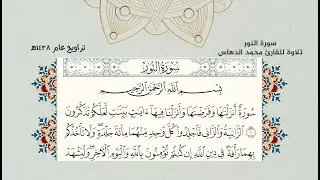 سورة النور
تلاوة للقارئ محمد الدهاس
تراويح عام ١٤٣٨هـ
سُورَةُ النُّورِ
بِسْمِ اللَّهِ الرَّحْمَٰنِ الرَّحِيمِ
سُورَةٌ أَنزَلْنَاهَا وَفَرَضْنَاهَا وَأَنزَلْنَا فِيهَا آيَاتٍ بَيِّنَاتٍ لَّعَلَّكُمْ تَذَكَّرُونَ
الزَّانِيَةُ وَالزَّانِي فَاجْلِدُوا كُلَّ وَاحِدٍ مِّنْهُمَا مِائَةَ جَلْدَةٍ وَلَا تَأْخُذْكُم
بِهِمَا رَأْفَةٌ فِي دِينِ اللَّهِ إِن كُنتُمْ تُؤْمِنُونَ بِاللَّهِ وَالْيَوْمِ الْآخِرِ وَلْيَشْهَدْ